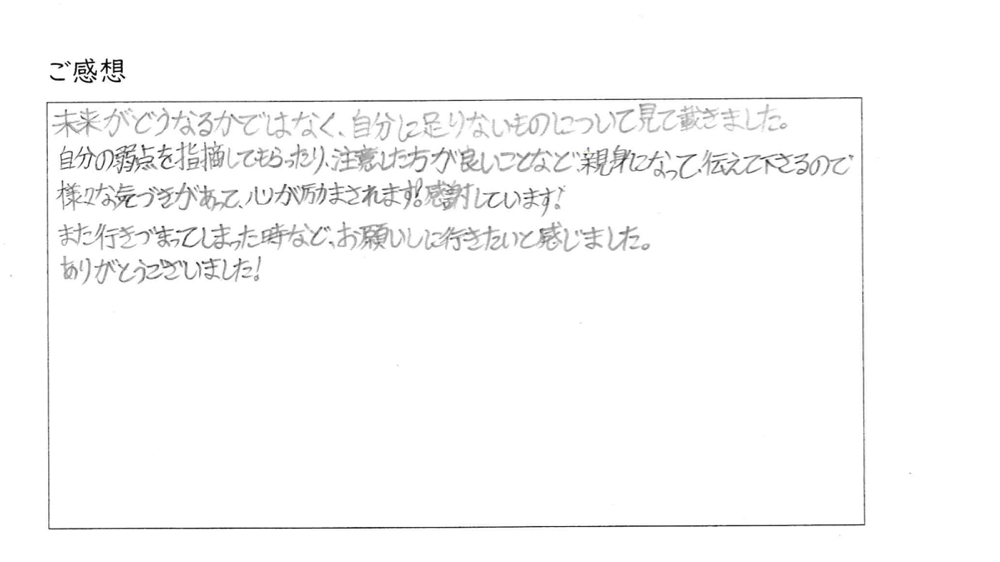 ご感想
未来がどうなるかではなく、自分に足りないものについて見て載きました。
自分の弱点を指摘してもらったり、注意した方が良いことなど親身になって、伝えて下さるので
様々な気づきがあって、心が励まされます!感謝しています!
また行きづまってしまった時など、お願いしに行きたいと感じました。
ありがとうございました!